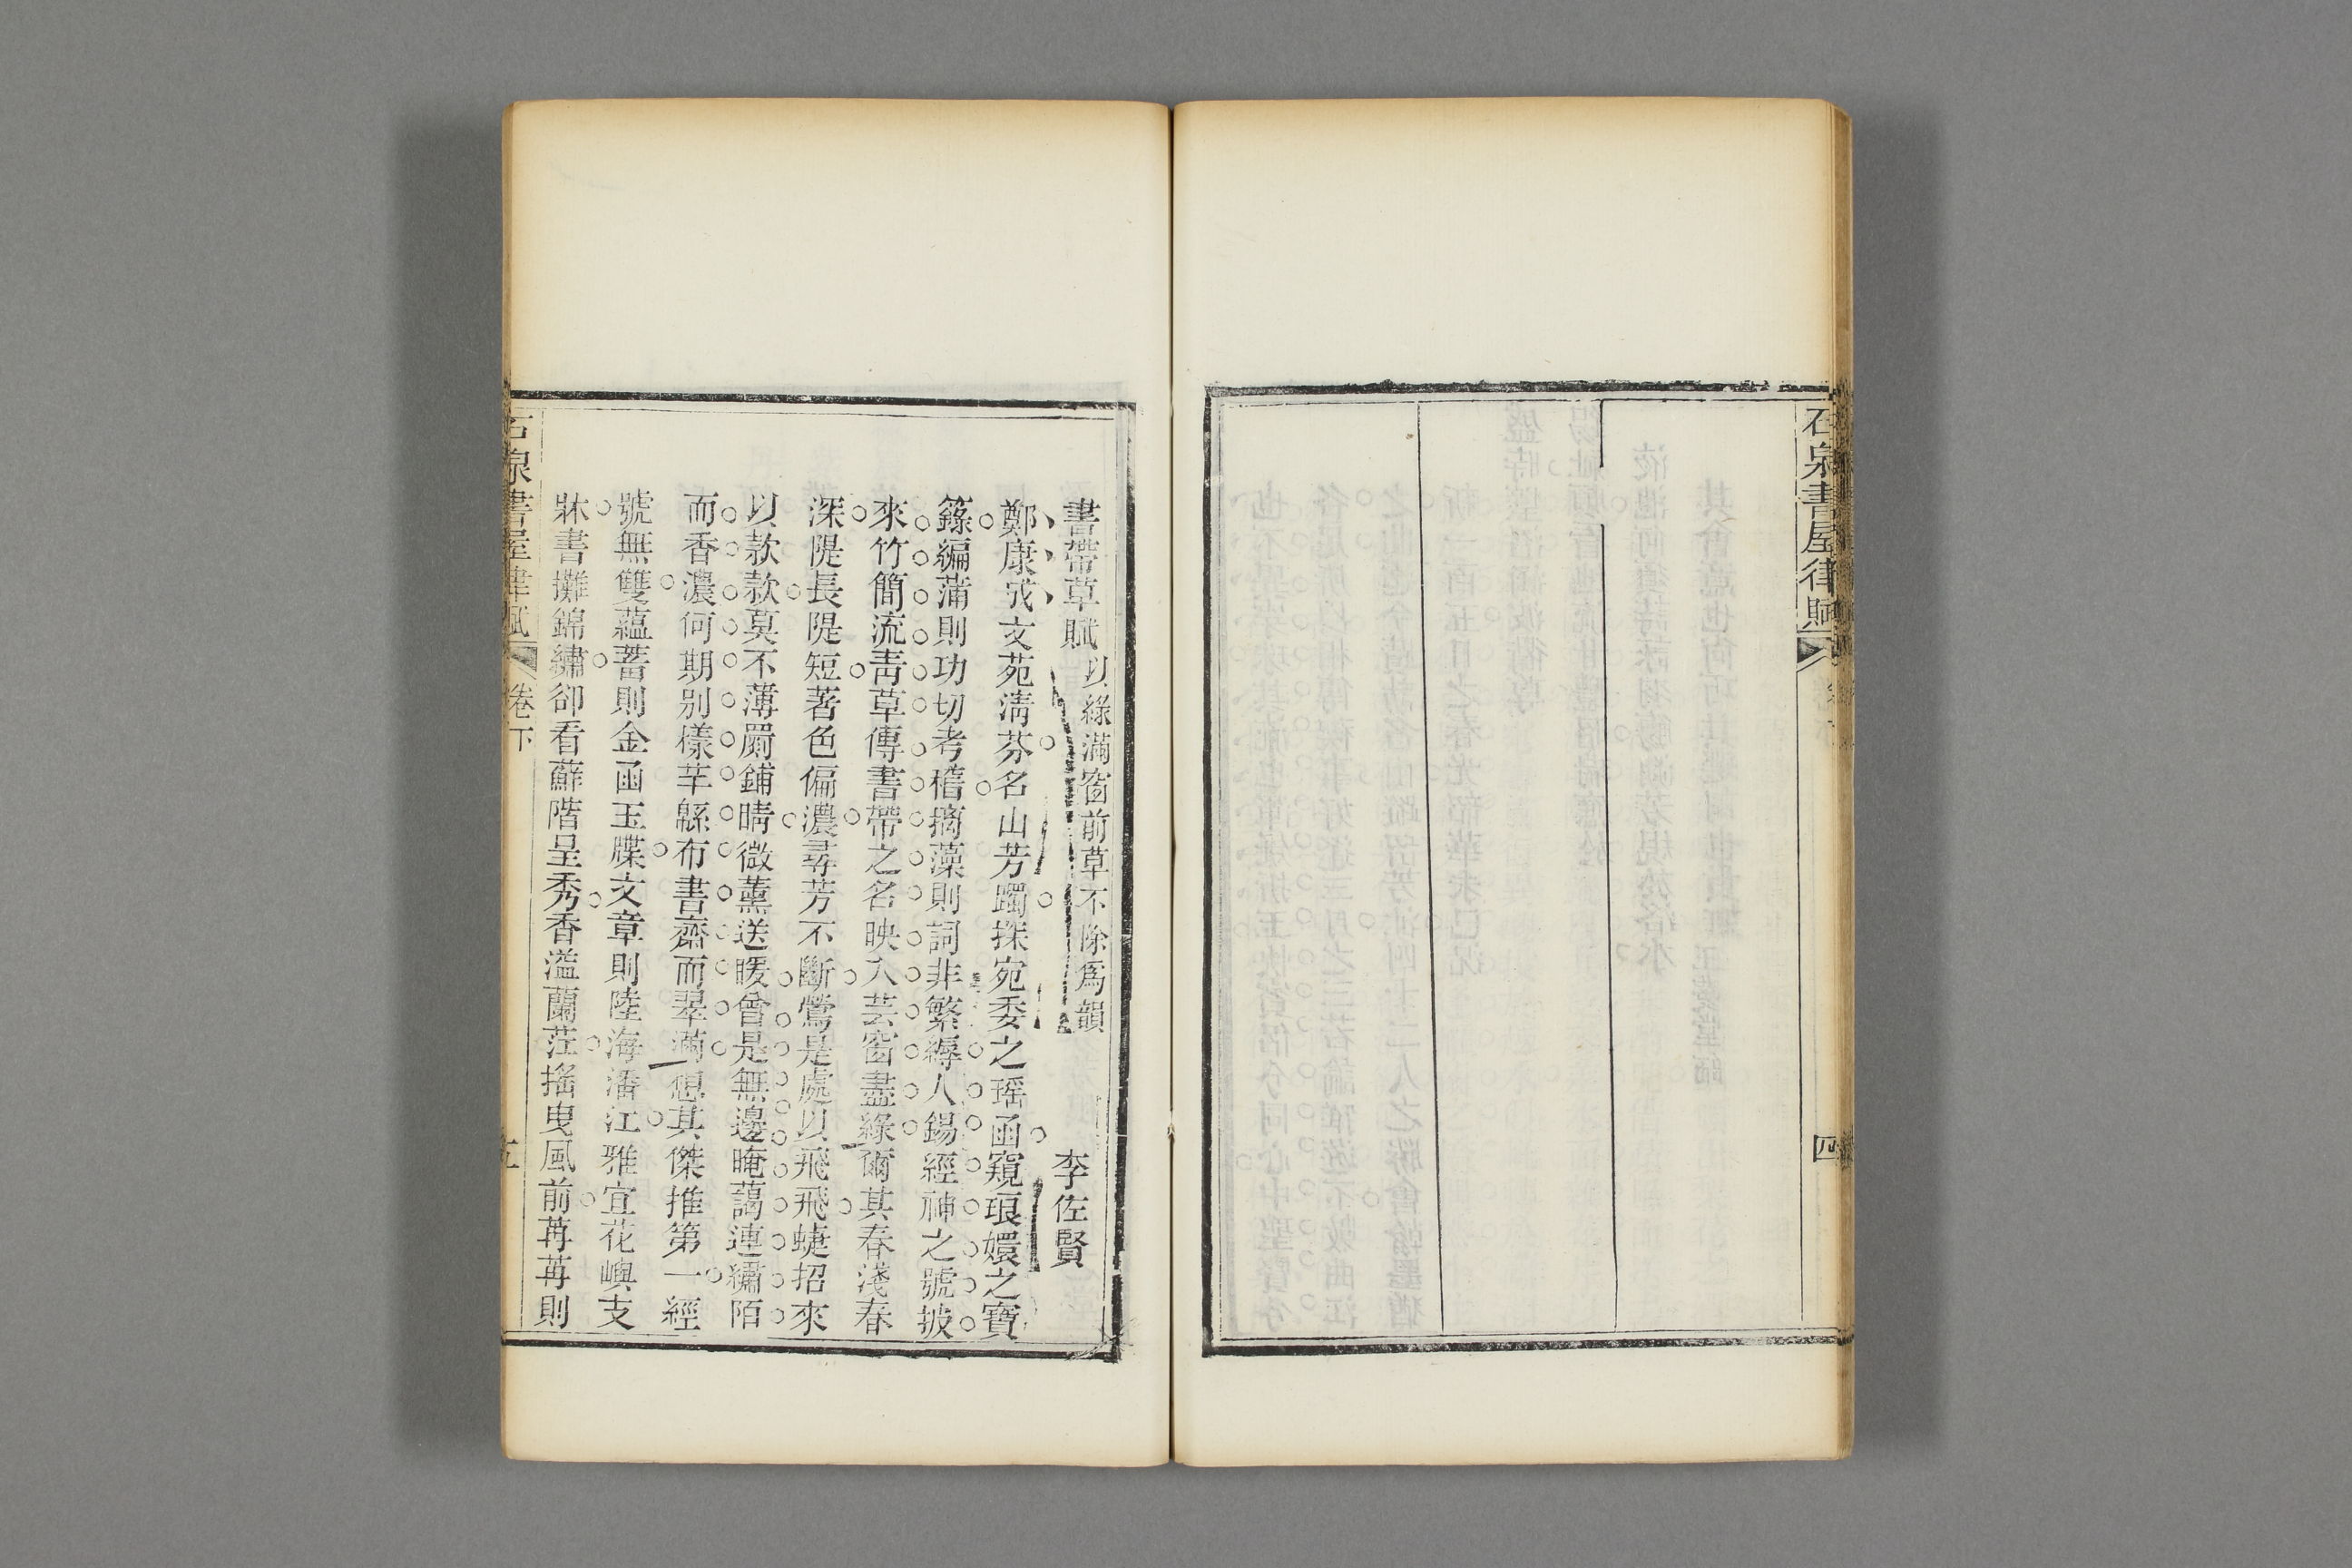 石泉書屋律賦
四
書帶草賦 以綠滿窗前草不除爲韻 李佐賢
鄭康成文苑淸芬名山芳躅探宛委之瑶函窺琅嬛之寶
籙編蒲則功切考稽摛藻則詞非繁縟人錫經神之號披
來竹簡流靑草傳書帶之名映入芸窗盡綠爾其春淺春
深隄長隄短著色偏濃尋芳不斷鶯是處以飛飛蜨招來
以款款莫不薄罽鋪晴微薰送暖曾是無邊晻藹連繡陌
而香濃何期别樣芊緜布書齋而翠滿想其傑推第一經
號無雙蘊蓄則金函玉牒文章則陸海潘江雅宜花嶼支
牀書攤錦繡卻看蘚階呈秀香溢蘭茳搖曳風前苒苒則
石泉書屋律賦
卷下
五